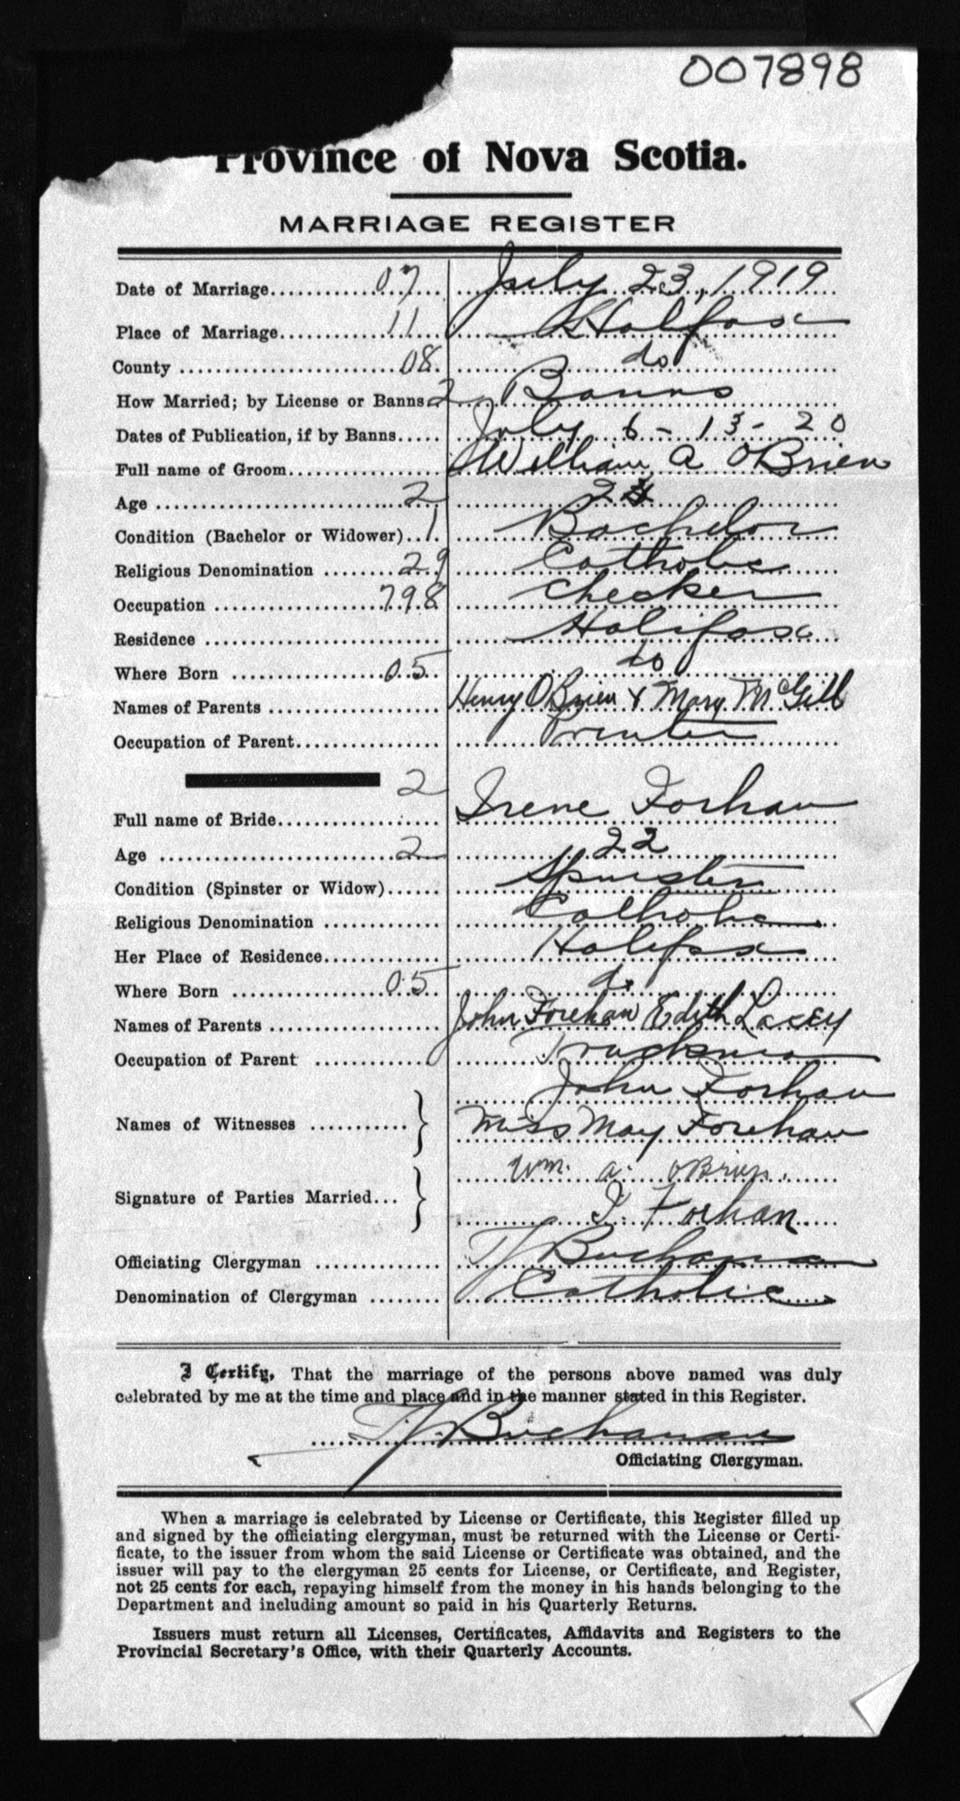 007898
Province of Nova Scotia.
MARRIAGE REGISTER
Date of Marriage 07 July 23, 1919
Place of Marriage 11 Halifax
County 08 do
How Married; by License or Banns 2 Banns
Dates of Publication, if by Banns July 6 - 13 - 20
Full name of Groom William A OBrien
Age 2
Condition (Bachelor or Widower) 1 Bachelor
Religious Denomination 29 Catholic
Occupation 798 Checker
Residence Halifax
Where Born 05 do
Names of Parents Henry OBrien & Mary McGill
Occupation of Parent Printer
2
Full name of Bride Irene Forhan
Age 2 22
Condition (Spinster or Widow) Spinster
Religious Denomination Catholic
Her Place of Residence Halifax
Where Born 05 do
Names of Parents John Forehan Edith Lacey
Occupation of Parent Truckman
John Forhan
Names of Witnesses
Miss May Forehan
Wm. A. OBrien.
Signature of Parties Married
I. Forhan
Officiating Clergyman TJ Buchanan
Denomination of Clergyman Catholic
I Certify, That the marriage of the persons above named was duly
celebrated by me at the time and place and in the manner stated in this Register.
TJ. Buchanan
Officiating Clergyman.
When a marriage is celebrated by License or Certificate, this Register filled up
and signed by the officiating clergyman, must be returned with the License or Certi-
ficate, to the issuer from whom the said License or Certificate was obtained, and the
issuer will pay to the clergyman 25 cents for License, or Certificate, and Register,
not 25 cents for each, repaying himself from the money in his hands belonging to the
Department and including amount so paid in his Quarterly Returns.
Issuers must return all Licenses, Certificates, Affidavits and Registers to the
Provincial Secretary's Office, with their Quarterly Accounts.